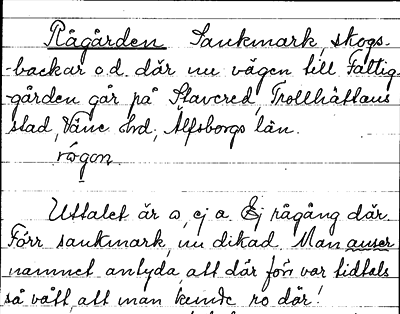 Rågården Sankmark, skogs-
-backar o.d. där nu vägen till Fattig-
-gården går på Stavered, Trollhättans
stad, Väne hd, Älfsborgs län.
rógon.
Uttalet är o, ej a. Ej rågång där.
Förr sankmark, nu dikad. Man anser
namnet antyda, att där förr var tidtals
så vått, att man kunde ro där!